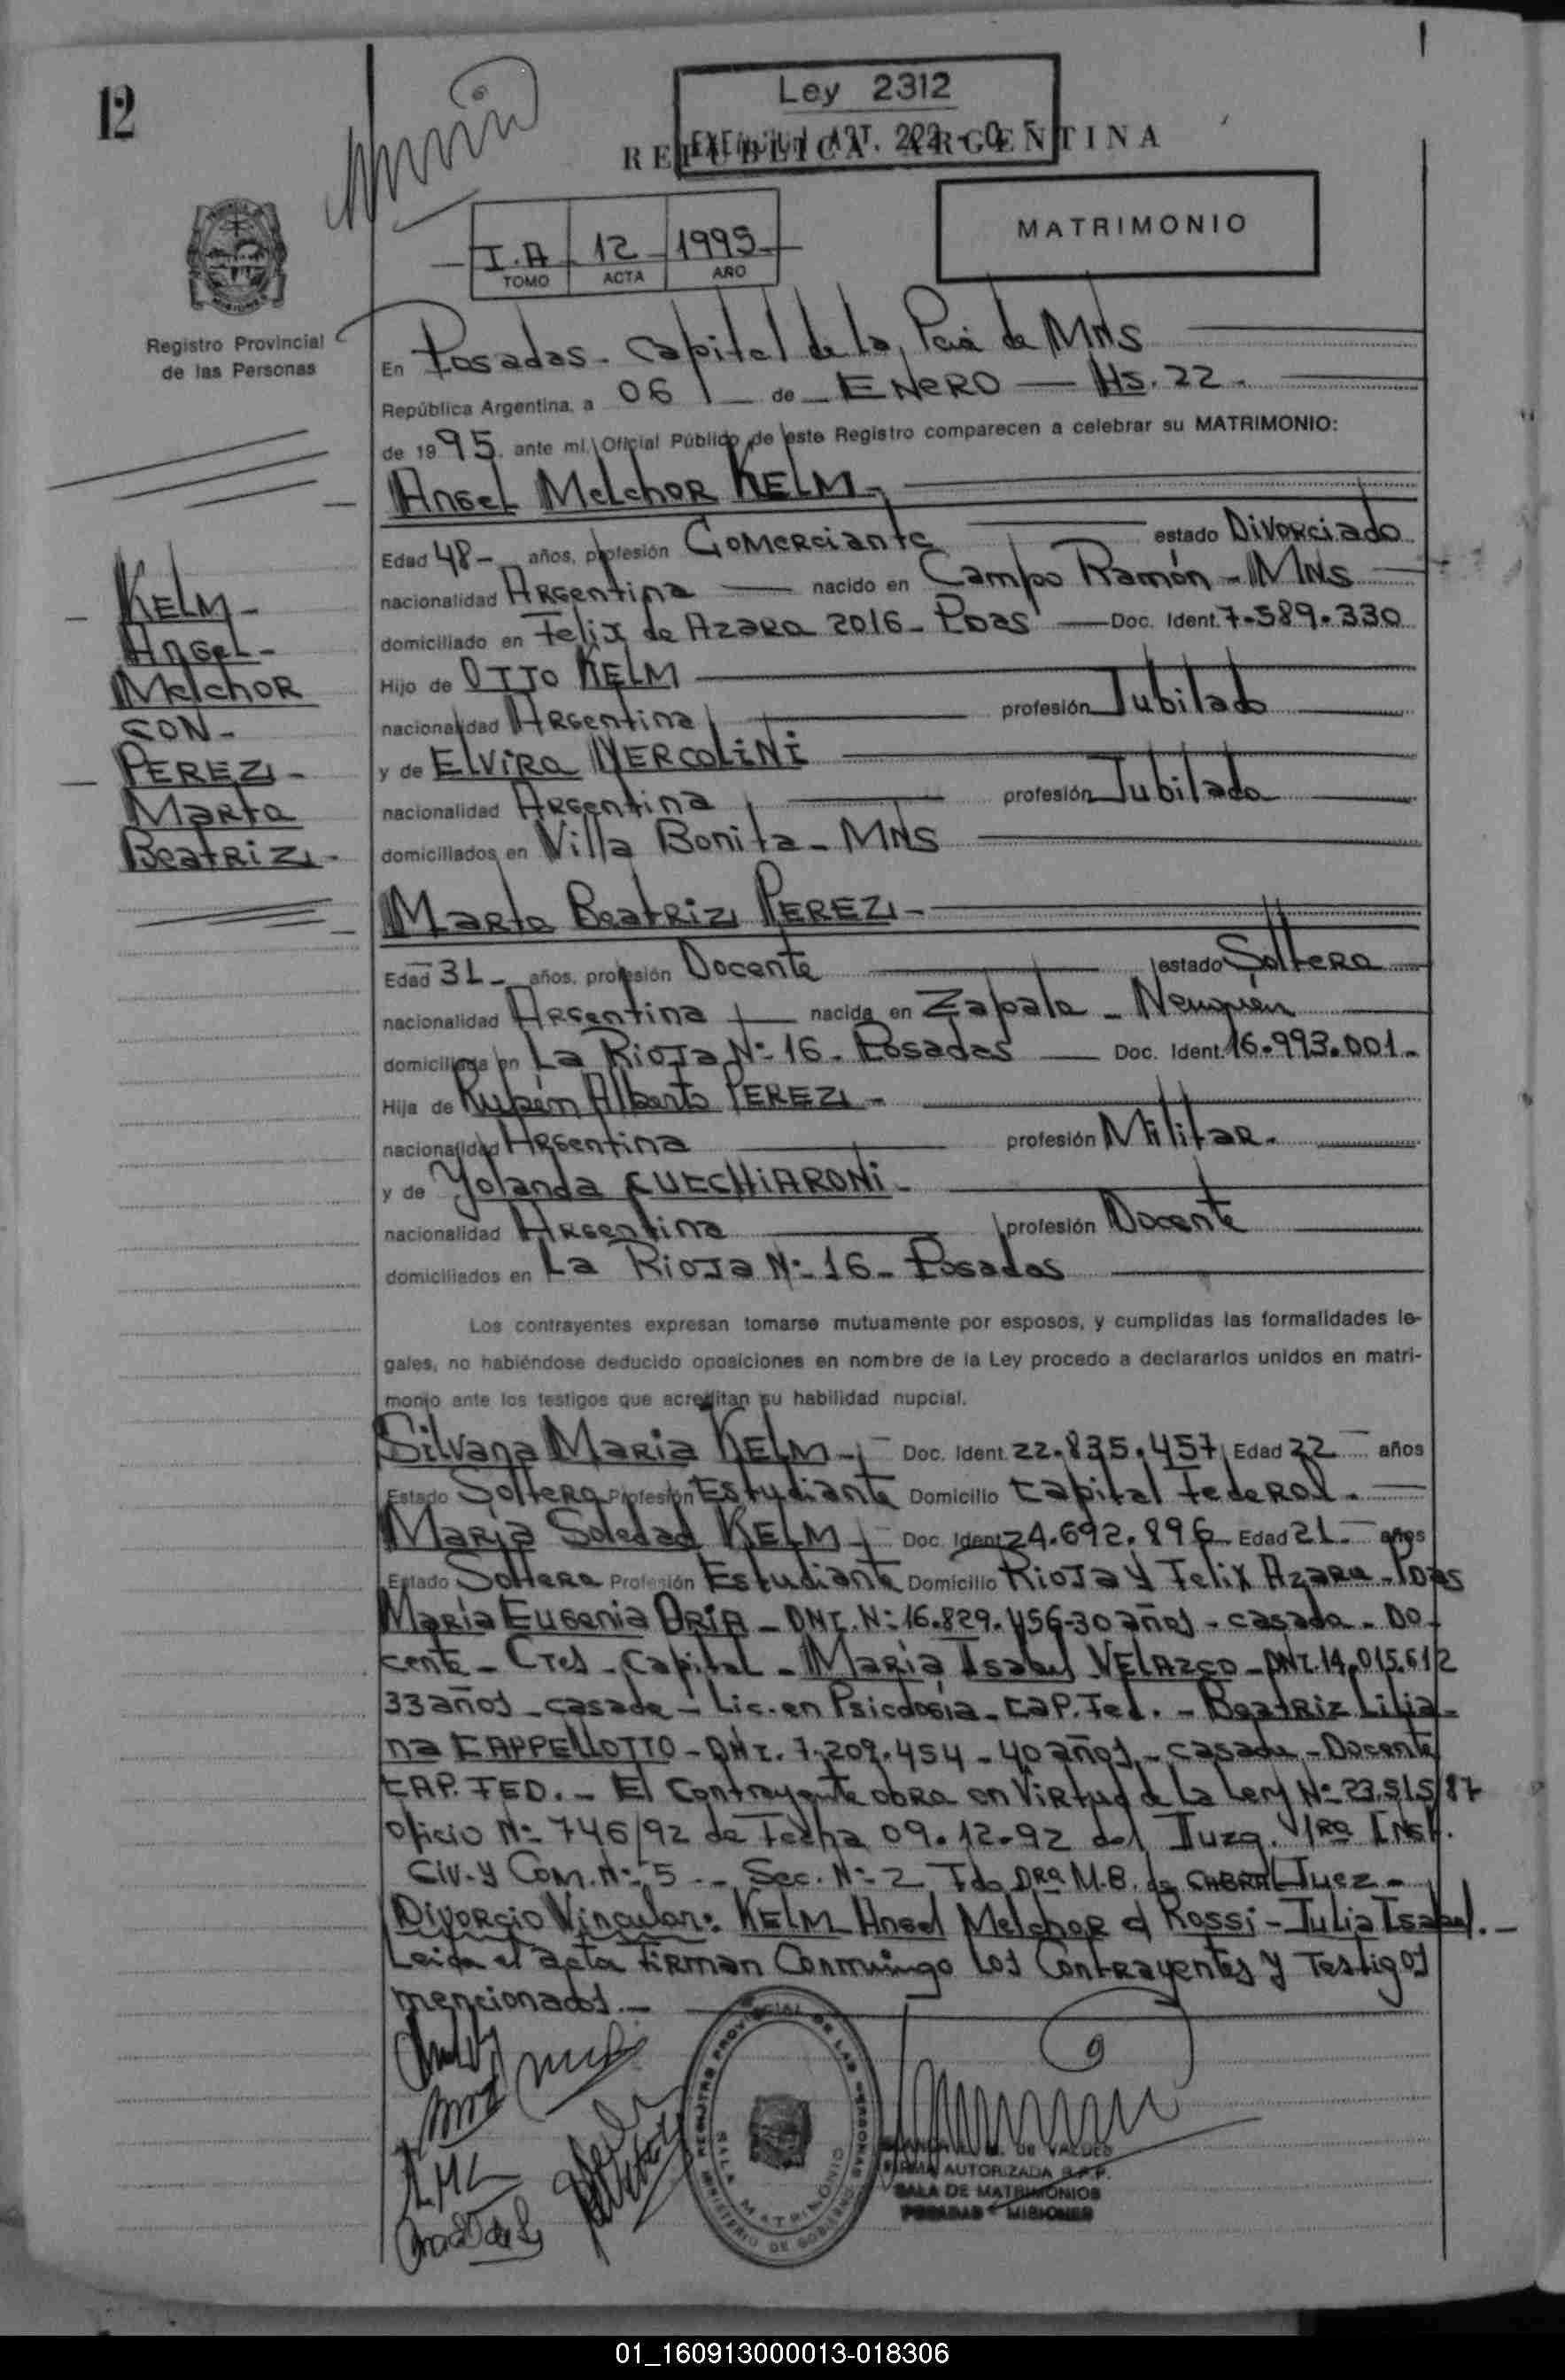 12
Ley 2312
REPUBLICA ARGENTINA
ART. 292
MATRIMONIO
I.A - 12 - 1995
TOMO ACTA AÑO
Registro Provincial
de las Personas
En Posadas - Capital de la Pcia de MNS
República Argentina, a 06 de ENERO Hs. 22.
de 1995, ante mí, Oficial Público de este Registro comparecen a celebrar su MATRIMONIO:
Angel Melchor KELM
Edad 48 - años, profesión Comerciante estado Divorciado
nacionalidad Argentina nacido en Campo Ramón - MNS
domiciliado en Felix de Azara 2016 - Pdas Doc. Ident. 7.589.330
Hijo de OTTO KELM
nacionalidad Argentina profesión Jubilado
y de Elvira NERCOLINI
nacionalidad Argentina profesión Jubilada
domiciliados en Villa Bonita - MNS
KELM -
Angel -
Melchor
CON -
PEREZ -
Marta
Beatriz -
Marta Beatriz PEREZ -
Edad 31 - años, profesión Docente estado Soltera
nacionalidad Argentina nacida en Zapala - Neuquén
domiciliada en La Rioja Nº 16 - Posadas Doc. Ident. 16.993.001 -
Hija de Rubén Alberto PEREZ -
nacionalidad Argentina profesión Militar.
y de Yolanda CUECHIARONI -
nacionalidad Argentina profesión Docente
domiciliados en La Rioja Nº 16 - Posadas
Los contrayentes expresan tomarse mutuamente por esposos, y cumplidas las formalidades le-
gales, no habiéndose deducido oposiciones en nombre de la Ley procedo a declararlos unidos en matri-
monio ante los testigos que acreditan su habilidad nupcial.
Silvana Maria KELM - Doc. Ident. 22.835.457 Edad 22 años
Estado Soltera Profesión Estudiante Domicilio Capital Federal.
María Soledad KELM - Doc. Ident. 24.692.896 Edad 21 - años
Estado Soltera Profesión Estudiante Domicilio Rioja y Felix Azara - Pdas
María Eugenia ORIA - DNI. Nº 16.829.456 - 30 años - casada - Do-
cente - Ctes - Capital - María Isabel VELAZCO - DNI. 14.015.612
33 años - casada - Lic. en Psicología - Cap. Fed. - Beatriz Lilia-
na CAPPELLOTTO - DNI. 7.209.454 - 40 años - casada - Docente
CAP. FED. - El Contrayente obra en Virtud de la Ley Nº 23.515/87
Oficio Nº 746/92 de Fecha 09.12.92 del Juzg. 1ra Inst.
Civ. y Com. Nº 5 - Sec. Nº 2 Fdo Dra M.B. de CABRAL Juez -
Divorcio Vincular: KELM Angel Melchor c/ Rossi - Julia Isabel. -
Leida el acta Firman Conmigo los Contrayentes y Testigos
mencionados. -
REGISTRO PROVINCIAL DE LAS PERSONAS
SALA MATRIMONIO
MINISTERIO DE GOBIERNO
DE VALDES
FIRMA AUTORIZADA R.P.P.
SALA DE MATRIMONIOS
POSADAS - MISIONES
01_160913000013-018306